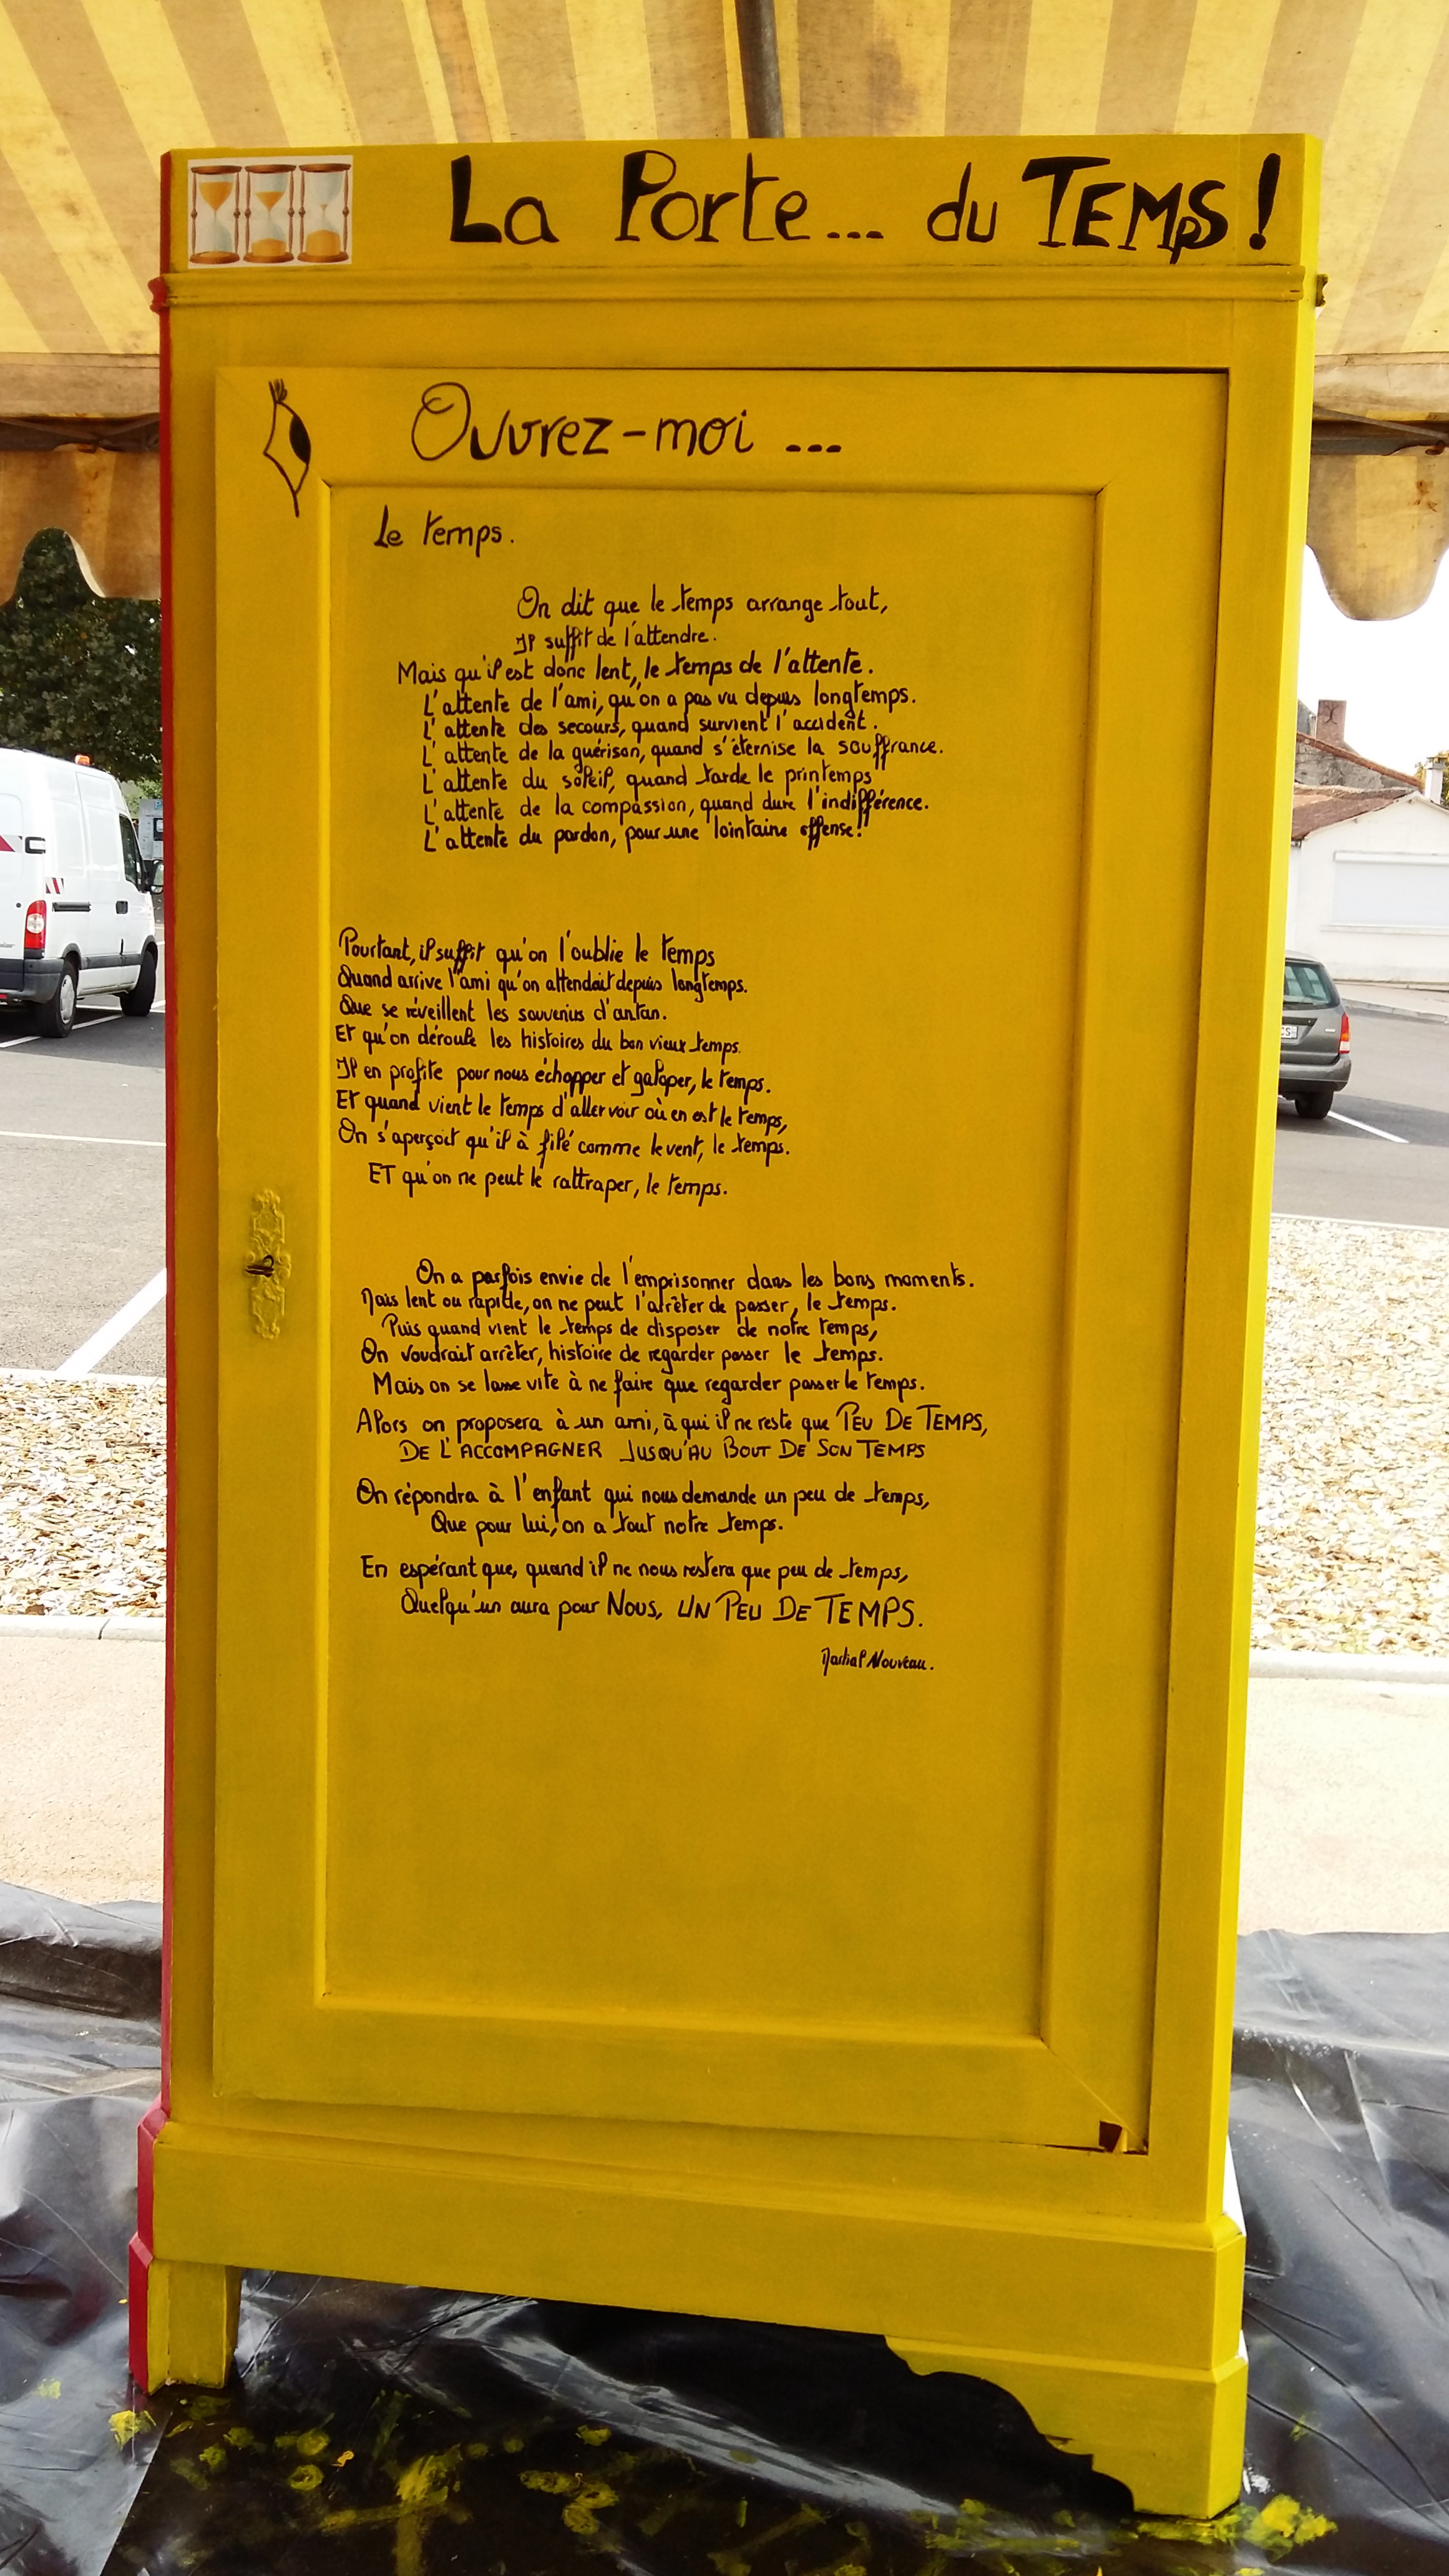 La Porte... du TEMpS!
Ouvrez-moi ...
Le temps.
On dit que le temps arrange tout,
Il suffit de l'attendre.
Mais qu'il est donc lent, le temps de l'attente.
L'attente de l'ami, qu'on a pas vu depuis longtemps.
L'attente des secours, quand survient l'accident.
L'attente de la guérison, quand s'éternise la souffrance.
L'attente du soleil, quand tarde le printemps
L'attente de la compassion, quand dure l'indifférence.
L'attente du pardon, pour une lointaine offense!
Pourtant, il suffit qu'on l'oublie le temps
Quand arrive l'ami qu'on attendait depuis longtemps.
Que se réveillent les souvenirs d'antan.
Et qu'on déroule les histoires du bon vieux temps.
Il en profite pour nous échapper et galoper, le temps.
Et quand vient le temps d'aller voir où en est le temps,
On s'aperçoit qu'il à filé comme le vent, le temps.
ET qu'on ne peut le rattraper, le temps.
On a parfois envie de l'emprisonner dans les bons moments.
Mais lent ou rapide, on ne peut l'arrêter de passer, le temps.
Puis quand vient le temps de disposer de notre temps,
On voudrait arrêter, histoire de regarder passer le temps.
Mais on se lasse vite à ne faire que regarder passer le temps.
Alors on proposera à un ami, à qui il ne reste que PEU DE TEMPS,
DE L'ACCOMPAGNER JUSQU'AU BOUT DE SON TEMPS
On répondra à l'enfant qui nous demande un peu de temps,
Que pour lui, on a tout notre temps.
En espérant que, quand il ne nous restera que peu de temps,
Quelqu'un aura pour Nous, UN PEU DE TEMPS.
Martial Nouveau.